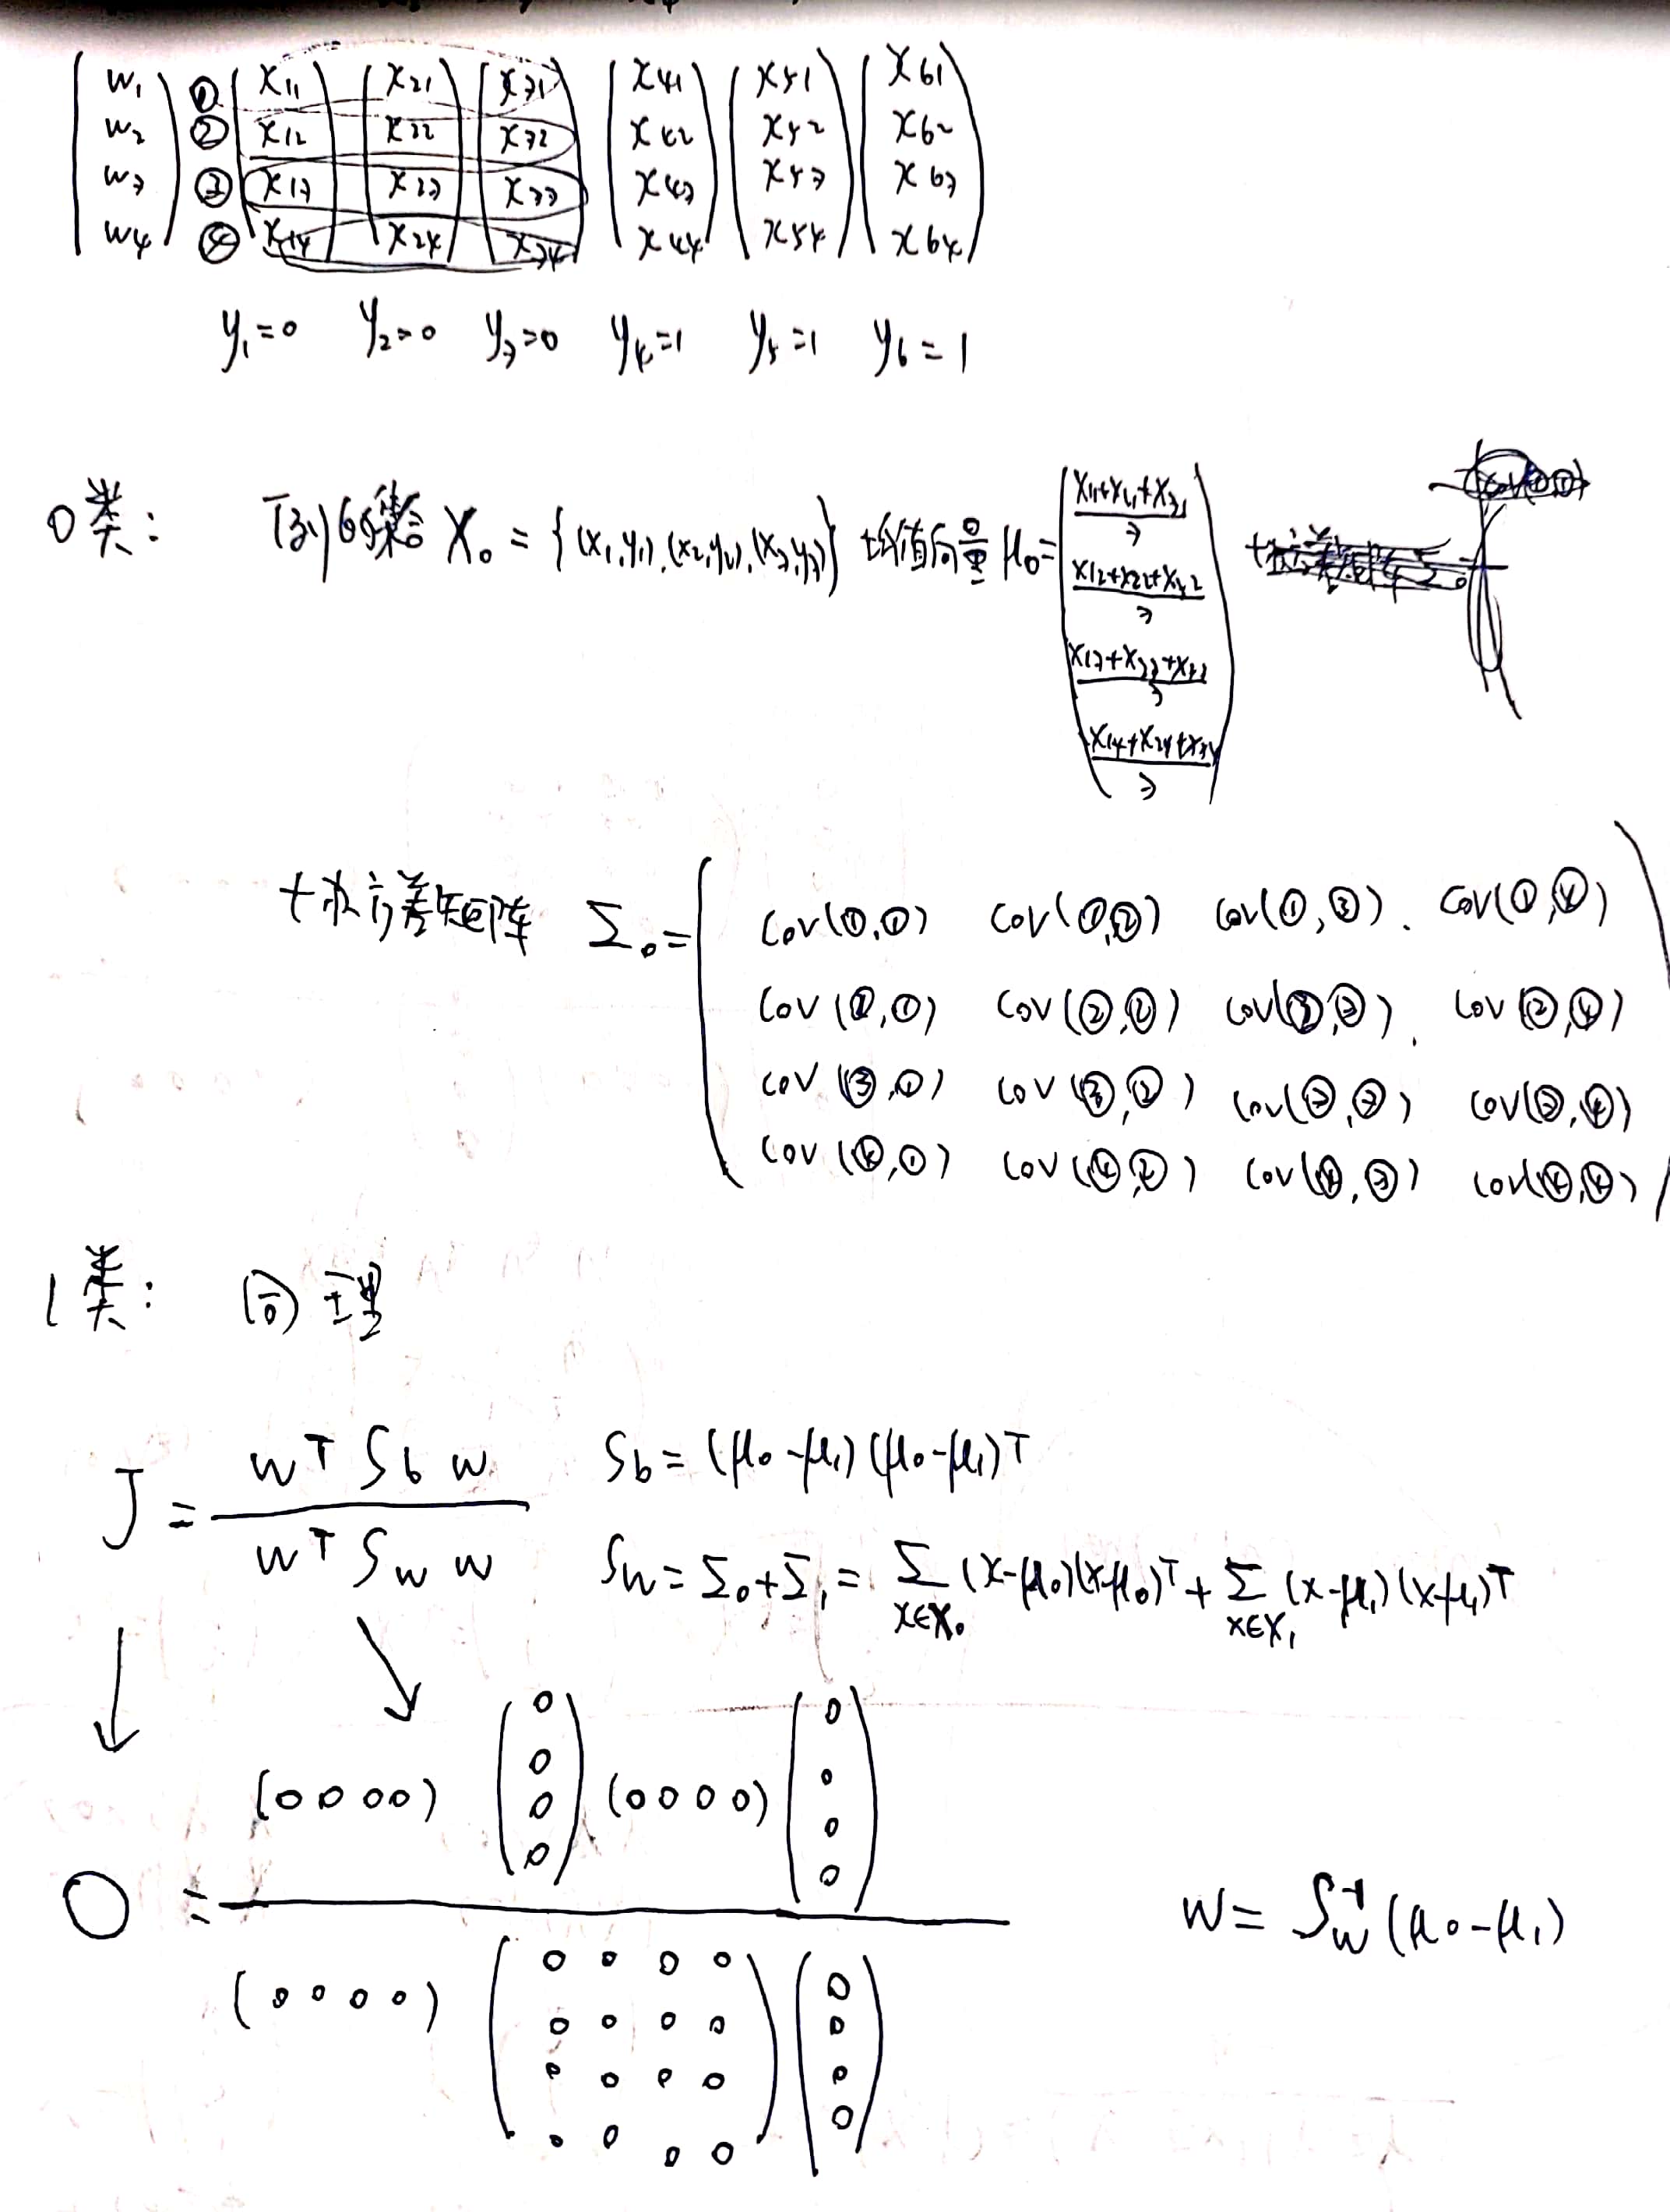 w₁ ① x₁₁ x₂₁ x₃₁ x₄₁ x₅₁ x₆₁
w₂ ② x₁₂ x₂₂ x₃₂ x₄₂ x₅₂ x₆₂
w₃ ③ x₁₃ x₂₃ x₃₃ x₄₃ x₅₃ x₆₃
w₄ ④ x₁₄ x₂₄ x₃₄ x₄₄ x₅₄ x₆₄
y₁=0 y₂=0 y₃=0 y₄=1 y₅=1 y₆=1
0类: 示例的集合 X₀ = {(x₁,y₁),(x₂,y₂),(x₃,y₃)} 均值向量 μ₀=
x₁₁+x₂₁+x₃₁
3
x₁₂+x₂₂+x₃₂
3
x₁₃+x₂₃+x₃₃
3
x₁₄+x₂₄+x₃₄
3
协方差矩阵 Σ₀=
cov(①,①) cov(①,②) cov(①,③) cov(①,④)
cov(②,①) cov(②,②) cov(②,③) cov(②,④)
cov(③,①) cov(③,②) cov(③,③) cov(③,④)
cov(④,①) cov(④,②) cov(④,③) cov(④,④)
1类: 同理
J = wᵀ S_b w / wᵀ S_w w
S_b = (μ₀-μ₁)(μ₀-μ₁)ᵀ
S_w = Σ₀+Σ₁ = Σ_{x∈X₀} (x-μ₀)(x-μ₀)ᵀ + Σ_{x∈X₁} (x-μ₁)(x-μ₁)ᵀ
(0 0 0 0) (0 0 0 0)
0 0
0 0
0 0
0 0
0 =
(0 0 0 0)
0 0 0 0 0
0 0 0 0 0
0 0 0 0 0
0 0 0 0 0
w = S_w⁻¹ (μ₀-μ₁)